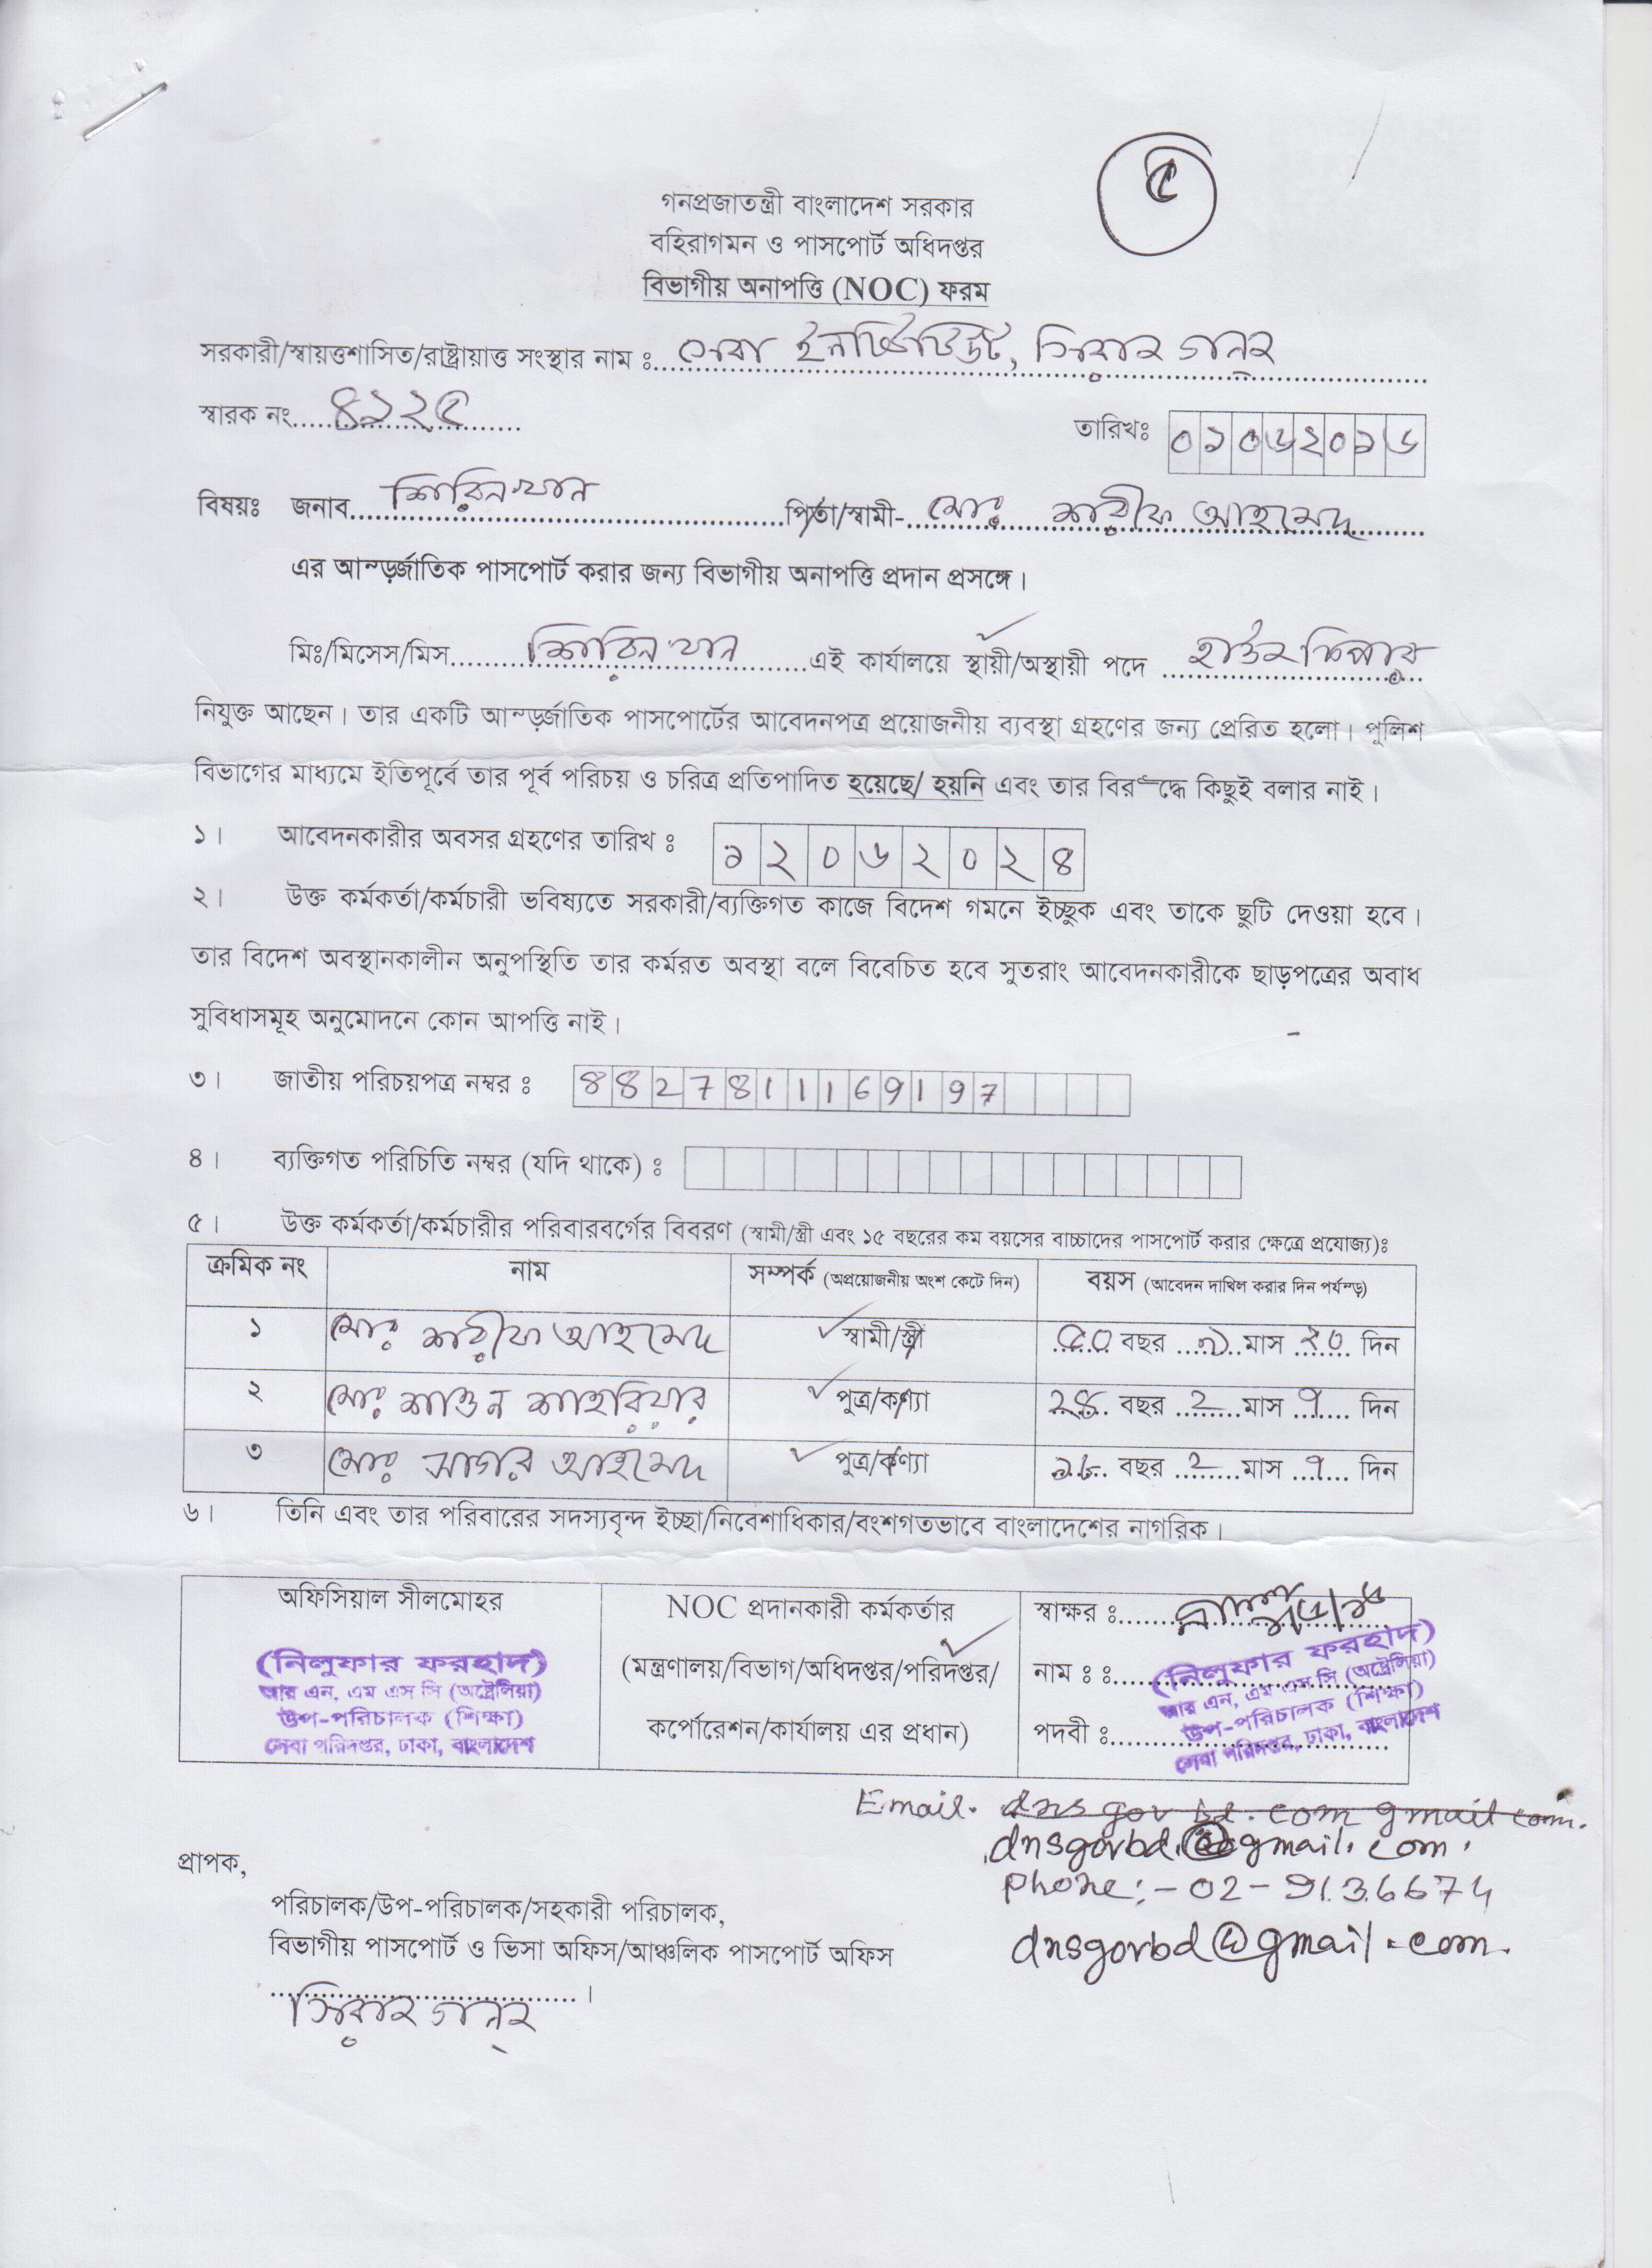 ৫
গনপ্রজাতন্ত্রী বাংলাদেশ সরকার
বহিরাগমন ও পাসপোর্ট অধিদপ্তর
বিভাগীয় অনাপত্তি (NOC) ফরম
সরকারী/স্বায়ত্তশাসিত/রাষ্ট্রায়াত্ত সংস্থার নাম ঃ সেবা ইনষ্টিটিউট, সিরাজগঞ্জ
স্বারক নং 8১২৫ তারিখঃ ০১০৬২০১৬
বিষয়ঃ জনাব শিরিন খান পিতা/স্বামী- মোঃ শরীফ আহমেদ
এর আন্ড়র্জাতিক পাসপোর্ট করার জন্য বিভাগীয় অনাপত্তি প্রদান প্রসঙ্গে।
মিঃ/মিসেস/মিস শিরিন খান এই কার্যালয়ে স্থায়ী/অস্থায়ী পদে হাউজ কিপার
নিযুক্ত আছেন। তার একটি আন্ড়র্জাতিক পাসপোর্টের আবেদনপত্র প্রয়োজনীয় ব্যবস্থা গ্রহণের জন্য প্রেরিত হলো। পুলিশ
বিভাগের মাধ্যমে ইতিপূর্বে তার পূর্ব পরিচয় ও চরিত্র প্রতিপাদিত হয়েছে/ হয়নি এবং তার বির—দ্ধে কিছুই বলার নাই।
১। আবেদনকারীর অবসর গ্রহণের তারিখ ঃ ১২০৬২০২৪
২। উক্ত কর্মকর্তা/কর্মচারী ভবিষ্যতে সরকারী/ব্যক্তিগত কাজে বিদেশ গমনে ইচ্ছুক এবং তাকে ছুটি দেওয়া হবে।
তার বিদেশ অবস্থানকালীন অনুপস্থিতি তার কর্মরত অবস্থা বলে বিবেচিত হবে সুতরাং আবেদনকারীকে ছাড়পত্রের অবাধ
সুবিধাসমূহ অনুমোদনে কোন আপত্তি নাই।
৩। জাতীয় পরিচয়পত্র নম্বর ঃ 8827811169197
৪। ব্যক্তিগত পরিচিতি নম্বর (যদি থাকে) ঃ
৫। উক্ত কর্মকর্তা/কর্মচারীর পরিবারবর্গের বিবরণ (স্বামী/স্ত্রী এবং ১৫ বছরের কম বয়সের বাচ্চাদের পাসপোর্ট করার ক্ষেত্রে প্রযোজ্য)ঃ
ক্রমিক নং নাম সম্পর্ক (অপ্রয়োজনীয় অংশ কেটে দিন) বয়স (আবেদন দাখিল করার দিন পর্যন্ড়)
১ মোঃ শরীফ আহমেদ স্বামী/স্ত্রী ৫০ বছর মাস ২০ দিন
২ মোঃ শাওন শাহরিয়ার পুত্র/কণ্যা বছর ২ মাস ৭ দিন
৩ মোঃ সাগর আহমেদ পুত্র/কণ্যা বছর ২ মাস ৭ দিন
৬। তিনি এবং তার পরিবারের সদস্যবৃন্দ ইচ্ছা/নিবেশাধিকার/বংশগতভাবে বাংলাদেশের নাগরিক।
অফিসিয়াল সীলমোহর
(নিলুফার ফরহাদ)
আর এন, এম এস সি (অষ্ট্রেলিয়া)
উপ-পরিচালক (শিক্ষা)
সেবা পরিদপ্তর, ঢাকা, বাংলাদেশ
NOC প্রদানকারী কর্মকর্তার
(মন্ত্রণালয়/বিভাগ/অধিদপ্তর/পরিদপ্তর/
কর্পোরেশন/কার্যালয় এর প্রধান)
স্বাক্ষর ঃ
নাম ঃ ঃ (নিলুফার ফরহাদ)
আর এন, এম এস সি (অষ্ট্রেলিয়া)
পদবী ঃ উপ-পরিচালক (শিক্ষা)
সেবা পরিদপ্তর, ঢাকা, বাংলাদেশ
Email. dns gov bd. com gmail com.
dnsgovbd@gmail.com.
Phone:-02-9136674
dnsgovbd@gmail.com.
প্রাপক,
পরিচালক/উপ-পরিচালক/সহকারী পরিচালক,
বিভাগীয় পাসপোর্ট ও ভিসা অফিস/আঞ্চলিক পাসপোর্ট অফিস
সিরাজগঞ্জ ।